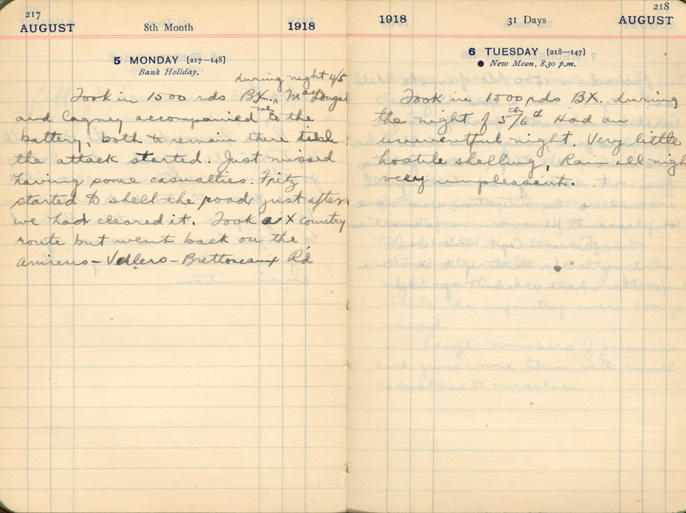 217
AUGUST 8th Month 1918
5 MONDAY [217-148]
Bank Holiday.
during night 4/5
Took in 1500 rds BX. MacDougal
and Cagney accompanied me to the
battery, both to remain there till
the attack started. Just missed
having some casualties. Fritz
started to shell the road just after
we had cleared it. Took a X country
route but went back on the
Amiens - Villers - Brettoneaux Rd
218
1918 31 Days AUGUST
6 TUESDAY [218-147]
● New Moon, 8.30 p.m.
Took in 1500 rds BX. during
the night of 5/6th Had an
uneventful night. Very little
hostile shelling, Rain all nigh
very unpleasant.